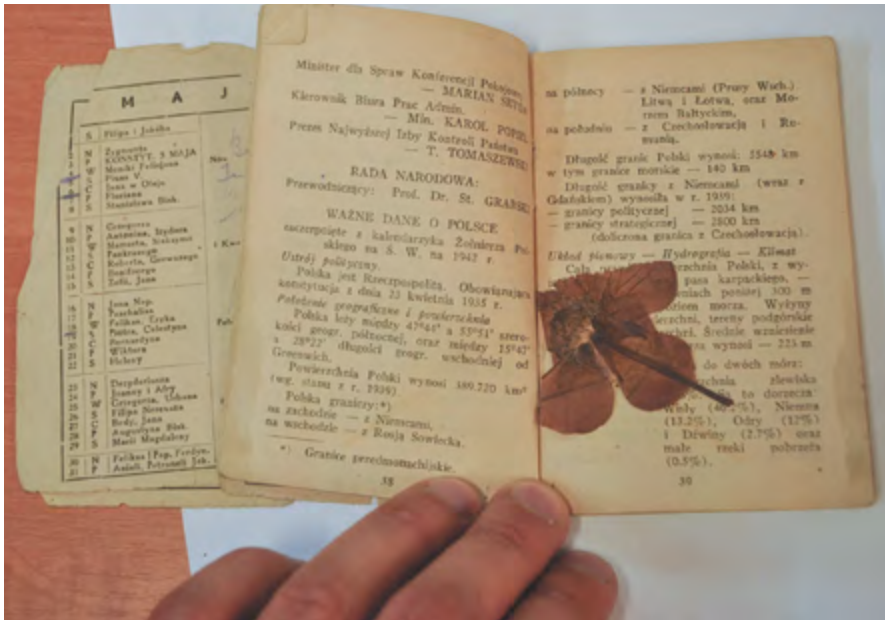 MAJ
S Filipa i Jakóba
N Zygmunta
P KONSTYT. 3 MAJA
W Moniki
S Piusa V.
C Jana w Oleju
P Floriana
8 S Stanisława Bisk.
9 N Grzegorza
10 P Antonina, Izydora
11 W Mamerta,
12 S Pankracego
13 C Roberta, Gerwazego
14 P Bonifacego
15 S Zofii, Jana
16 N Jana Nep.
17 P Paschalisa
18 W Feliksa, Eryka
19 S Piotra, Celestyna
20 C Bernardyna
21 P Wiktora
22 S Heleny
23 N Dezyderiusza
24 P Joanny i Afry
25 W Grzegorza, Urbana
26 S Filipa Nereusza
27 C Bedy, Jana
28 P Augustyna Bisk.
29 S Marii Magdaleny
30 N Feliksa I Pap., Ferdyn.
31 P Anieli, Petroneli
Minister dla Spraw Konferencji Pokojowej
— MARIAN SEYDA
Kierownik Biura Prac Admin.
— Min. KAROL POPIEL
Prezes Najwyższej Izby Kontroli Państwa
— T. TOMASZEWSKI
RADA NARODOWA:
Przewodniczący: Prof. Dr. St. GRABSKI
WAŻNE DANE O POLSCE
zaczerpnięte z kalendarzyka Żołnierza Pol-
skiego na Ś. W. na 1942 r.
Ustrój polityczny.
Polska jest Rzecząpospolitą. Obowiązująca
konstytucja z dnia 23 kwietnia 1935 r.
Położenie geograficzne i powierzchnia
Polska leży między 47°44' a 55°51' szero-
kości geogr. północnej, oraz między 15°47'
a 28°22' długości geogr. wschodniej od
Greenwich.
Powierzchnia Polski wynosi 389.720 km²
(wg. stanu z r. 1939)
Polska graniczy:*)
na zachodzie — z Niemcami,
na wschodzie — z Rosją Sowiecką.
*) Granice przedmonachijskie.
38
na północy — z Niemcami (Prusy Wsch.)
Litwą i Łotwą, oraz Mo-
rzem Bałtyckim,
na południu — z Czechosłowacją i Ru-
munią.
Długość granic Polski wynosi: 5548 km
w tym granice morskie — 140 km
Długość granicy z Niemcami (wraz z
Gdańskiem) wynosiła w r. 1939:
— granicy politycznej — 2034 km
— granicy strategicznej — 2800 km
(doliczona granica z Czechosłowacją).
Układ pionowy — Hydrografia — Klimat
Cała powierzchnia Polski, z wy-
pasa karpackiego, —
poniżej 300 m
poziem morza. Wyżyny
tereny podgórskie
Średnie wzniesienie
morza wynosi — 223 m
do dwóch mórz:
zlewiska
to dorzecza:
Wisły Niemna
(13.2%), Odry (12%)
i Dźwiny (2.7%) oraz
małe rzeki pobrzeża
(0.5%).
39